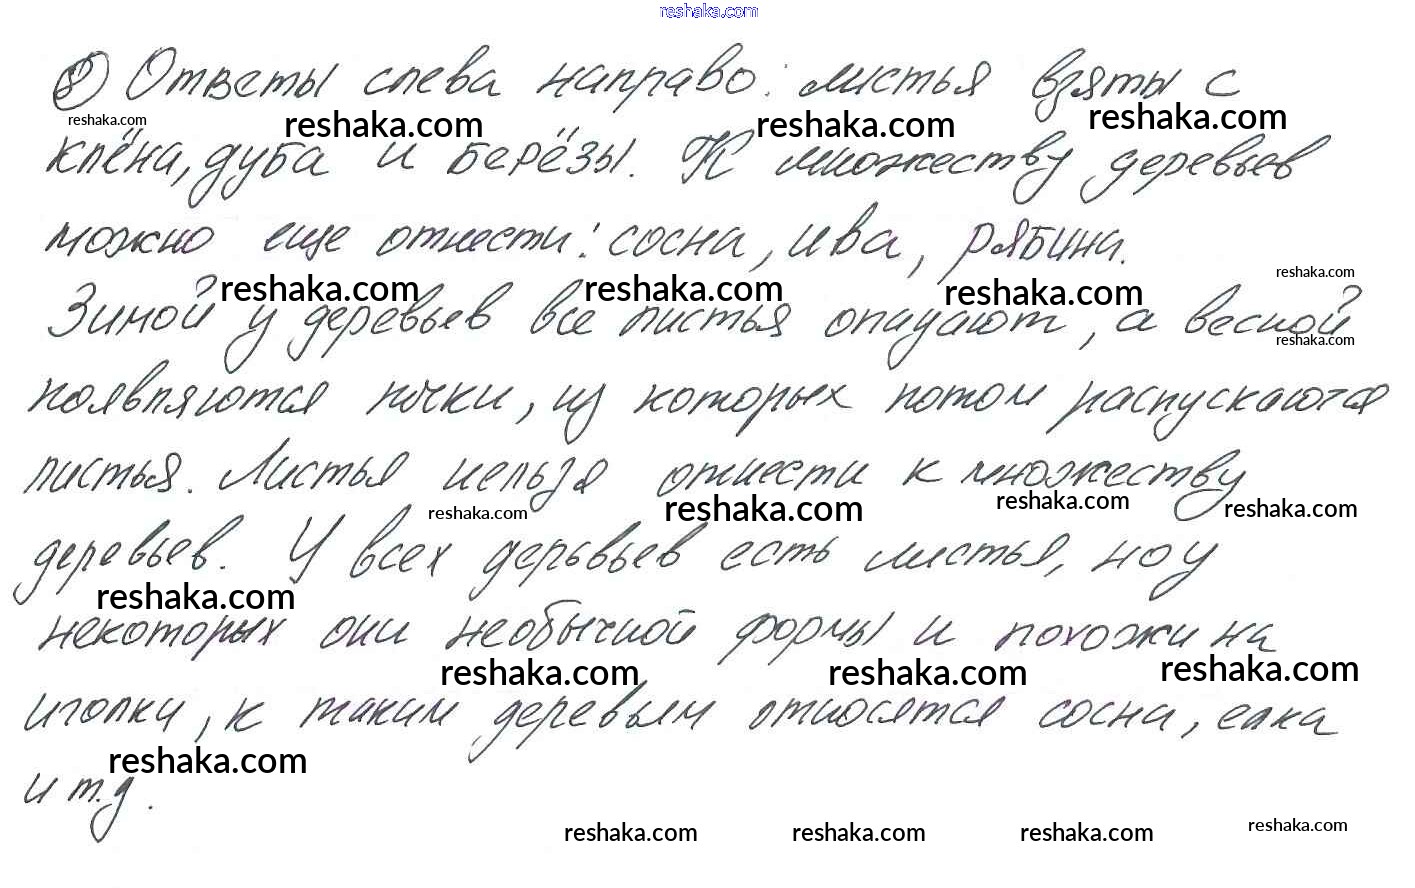 reshaka.com
8) Ответы слева направо: листья взяты с
reshaka.com reshaka.com reshaka.com reshaka.com
клёна, дуба и берёзы. К множеству деревьев
можно еще отнести: сосна, ива, рябина.
reshaka.com reshaka.com reshaka.com reshaka.com
Зимой у деревьев все листья опадают, а весной
reshaka.com
появляются почки, из которых потом распускаются
листья. Листья нельзя отнести к множеству
reshaka.com reshaka.com reshaka.com reshaka.com
деревьев. У всех деревьев есть листья, но у
reshaka.com
некоторых они необычной формы и похожи на
reshaka.com reshaka.com reshaka.com
иголки, к таким деревьям относятся сосна, елка
reshaka.com
и т.д.
reshaka.com reshaka.com reshaka.com reshaka.com